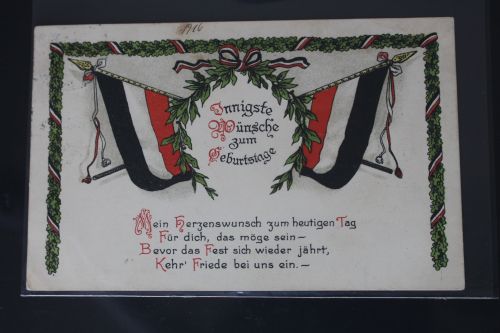 1916
Innigste
Wünsche
zum
Geburtstage
Mein Herzenswunsch zum heutigen Tag
Für dich, das möge sein—
Bevor das Fest sich wieder jährt,
Kehr' Friede bei uns ein.—